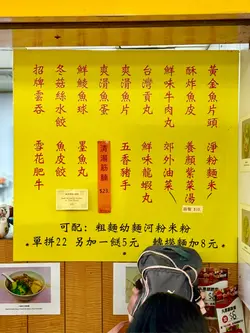 黃金魚片頭
酥炸魚皮
鮮味牛肉丸
台灣貢丸
爽滑魚片
爽滑魚蛋
鮮鯪魚球
冬菇絲水餃
招牌雲吞
淨粉麵米
養顏紫菜湯
郊外油菜
鮮味龍蝦丸
五香豬手
清湯筋腩
$28
墨魚丸
魚皮餃
雪花肥牛
可配：粗麵幼麵河粉米粉
單拼22 另加一餸5元
轉撈麵加8元